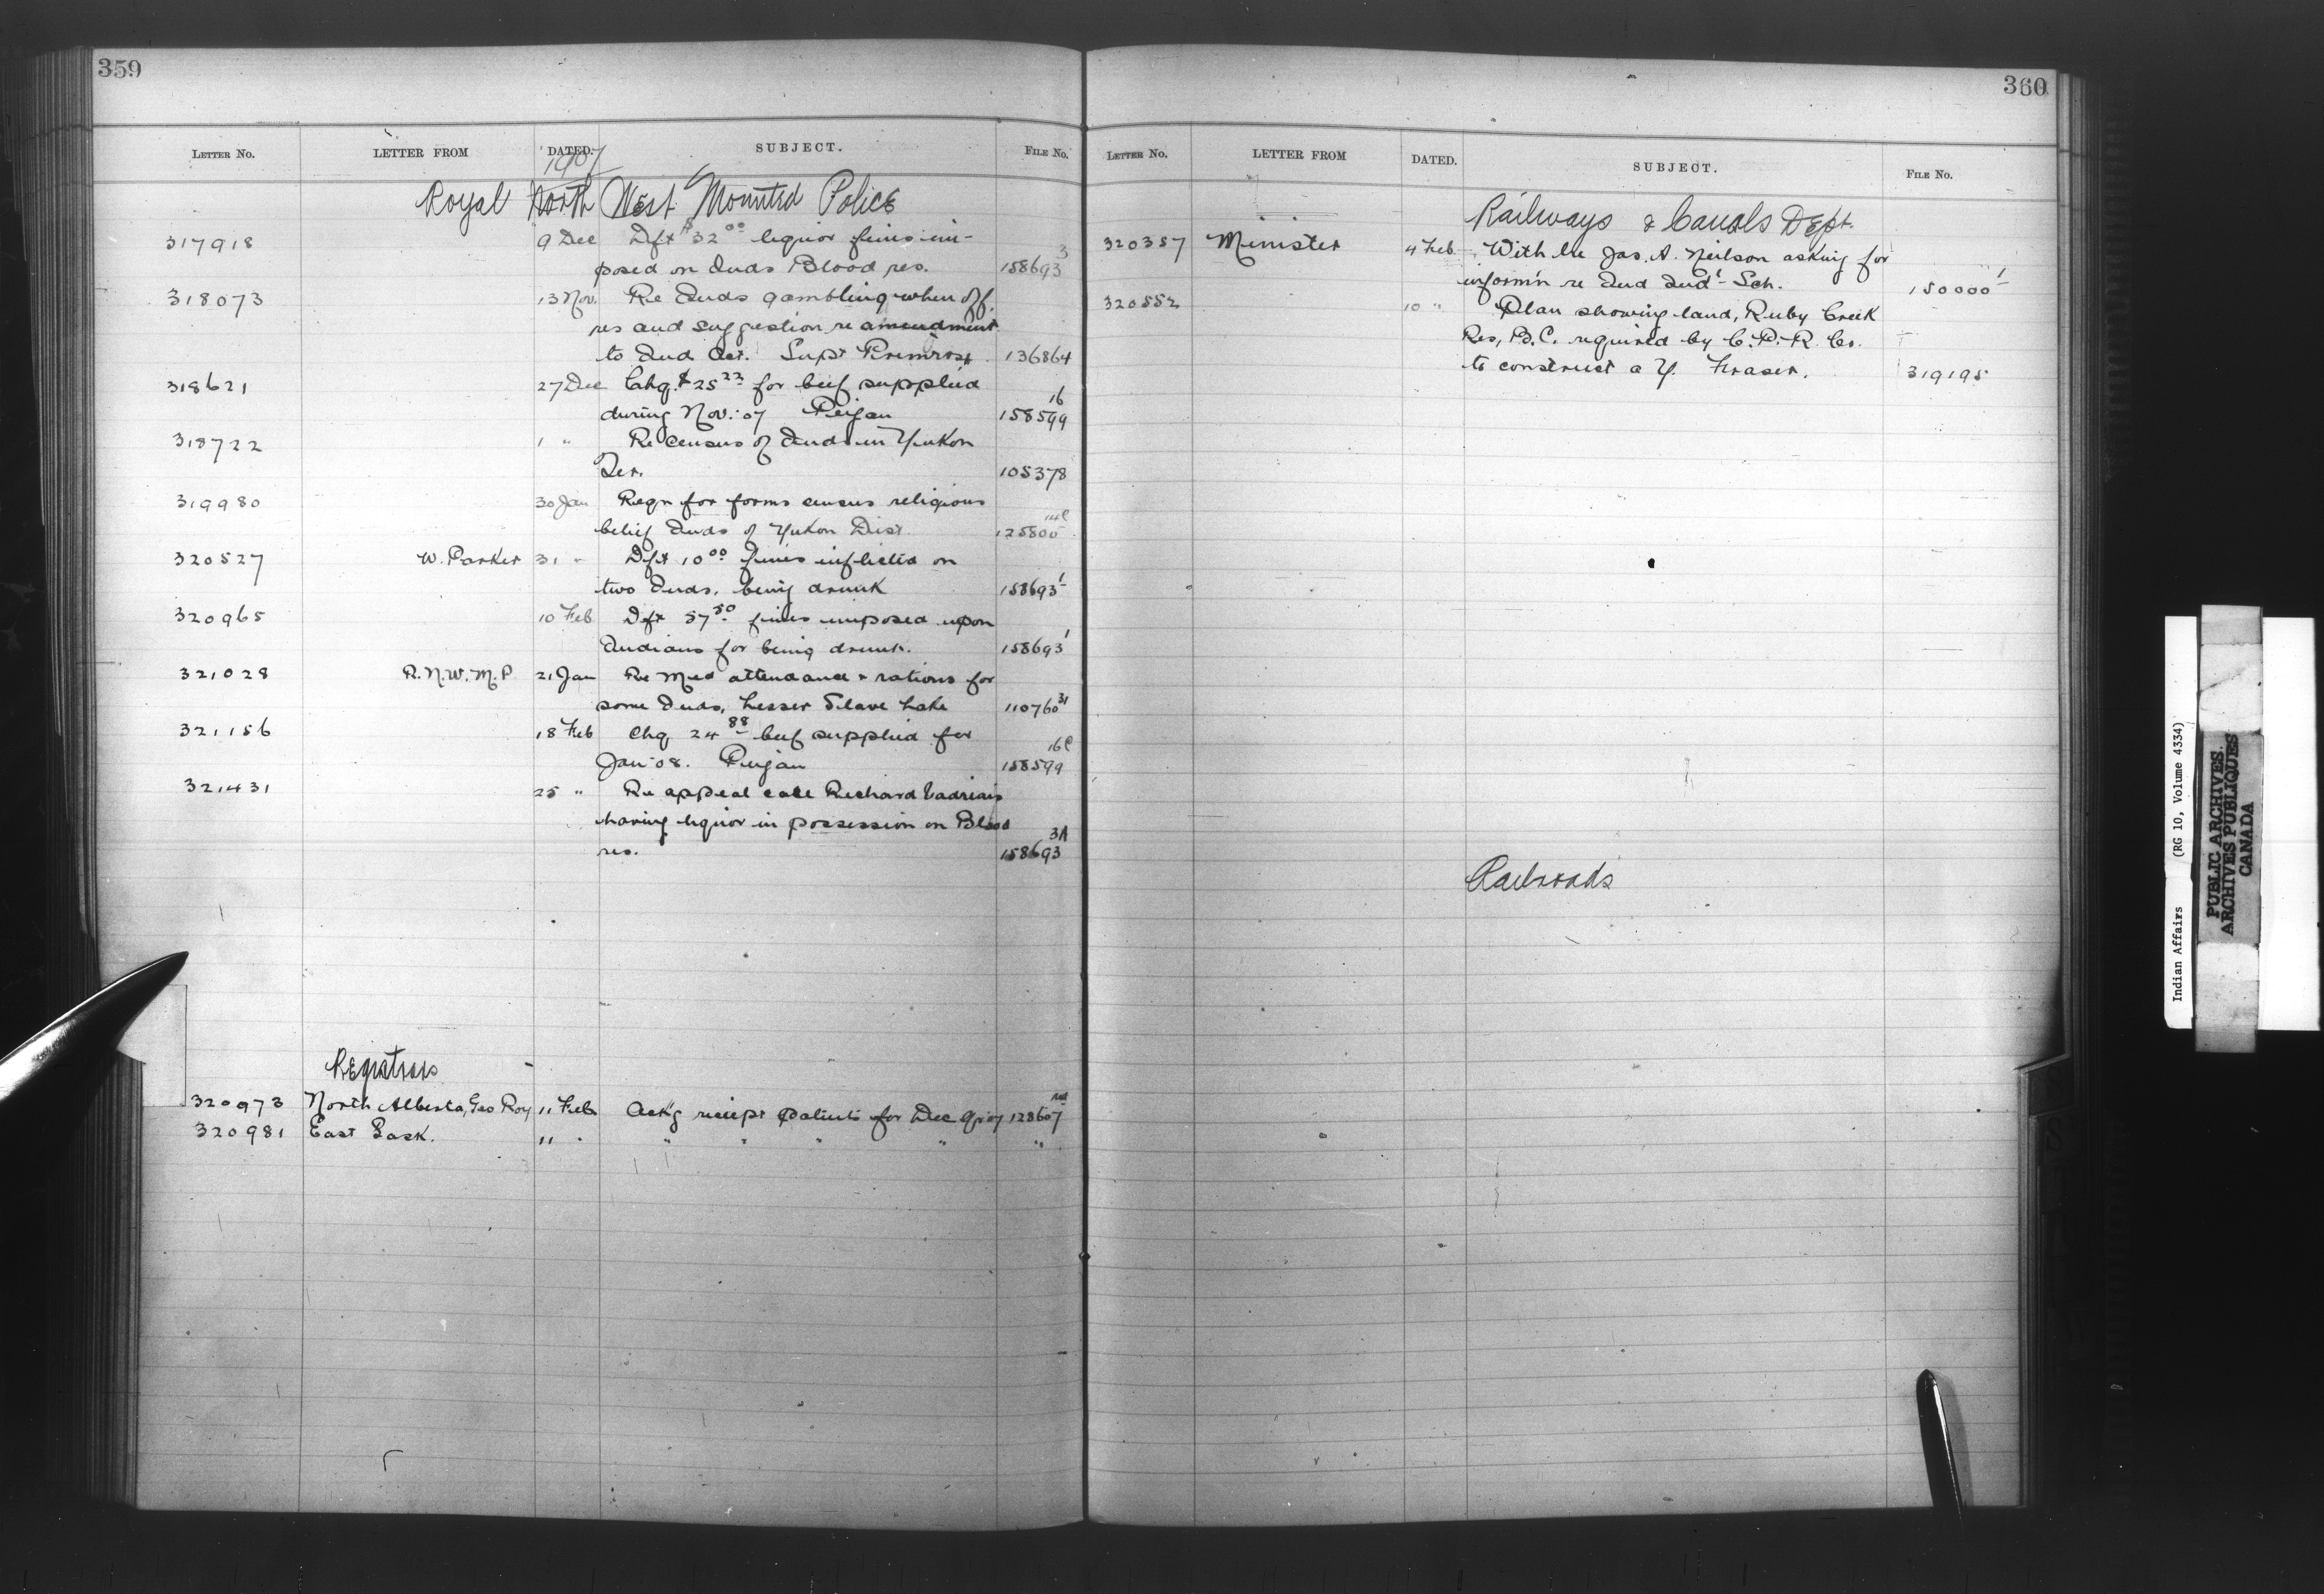 359
LETTER NO. LETTER FROM DATED. SUBJECT. FILE No.
1907
Royal North West Mounted Police
317918 9 Dec Dft $32 00 liquor fines im-
posed on Inds Blood res. 158693 3
318073 13 Nov. Re Inds gambling when off
res and suggestion re amendment
to Ind Act. Supt Primrose. 136864
318621 27 Dec Chq. $25 22 for beef supplied
during Nov. 07 Peigan 158599 16
318722 1 " Re Census of Inds in Yukon
Ter. 105378
319980 30 Jan Reqn for forms census religious
belief Inds of Yukon Dist 125800
320527 W. Parker 31 " Dft 10 00 fines inflicted on
two Inds. being drunk 158693 1
320965 10 Feb Dft 57 50 fines imposed upon
Indians for being drunk. 158693 1
321028 R.N.W.M.P. 21 Jan Re Med attendance & rations for
some Inds, Lesser Slave Lake 110760 31
321156 18 Feb Chq 24 88 beef supplied for
Jan 08. Peigan 158599 16
321431 25 " Re appeal case Richard
having liquor in possession on Blood
res. 158693 3A
Registrars
320973 North Alberta, Geo Roy 11 Feb Ack'g receipt patents for Dec 128607
320981 East Sask. 11 " " " " " "
360
LETTER NO. LETTER FROM DATED. SUBJECT. FILE No.
Railways & Canals Dept.
320357 Minister 4 Feb With Jas. A. Neilson asking for
inform'n re Ind Ind'l Sch. 150000 1
320552 10 " Plan showing land, Ruby Creek
Res, B.C. required by C.P.R. Co.
to construct a Y. Fraser. 319195
Railroads
Indian Affairs (RG 10, Volume 4334)
PUBLIC ARCHIVES
ARCHIVES PUBLIQUES
CANADA